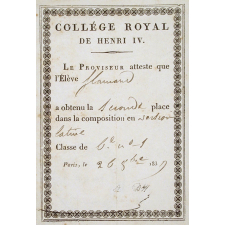 COLLÉGE ROYAL
DE HENRI IV.
LE PROVISEUR atteste que
l'Élève
a obtenu la Seconde place
dans la composition en version
latine
Classe de 6e n° 1
Paris, le 26 9bre 183